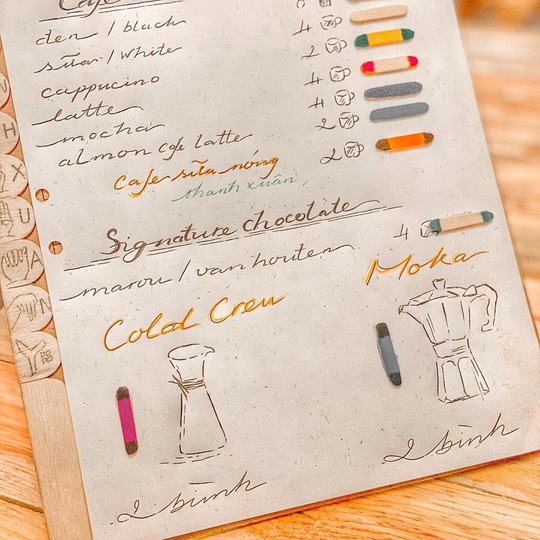 Cafe
đen / black
sữa / white
cappucino
latte
mocha
almon cafe latte
Cafe sữa nóng
thanh xuân
4
2
4
4
2
2
Signature chocolate
marou / vanhouten
4
Cold Crew
Moka
2 bình
2 bình
H
X
U
A
N
Y